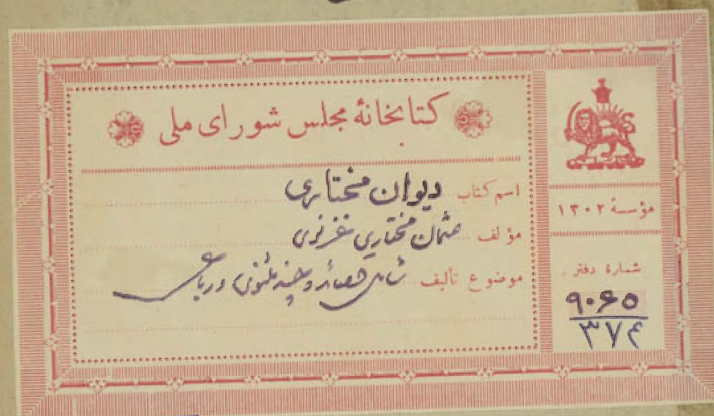 کتابخانهٔ مجلس شورای ملی
اسم کتاب دیوان مختاری
مؤلف عثمان مختاری غزنوی
موضوع تألیف شامل قصائد و چند مثنوی و رباعی
مؤسسهٔ ۱۳۰۲
شمارهٔ دفتر
۹۰۶۵
۳۷۴